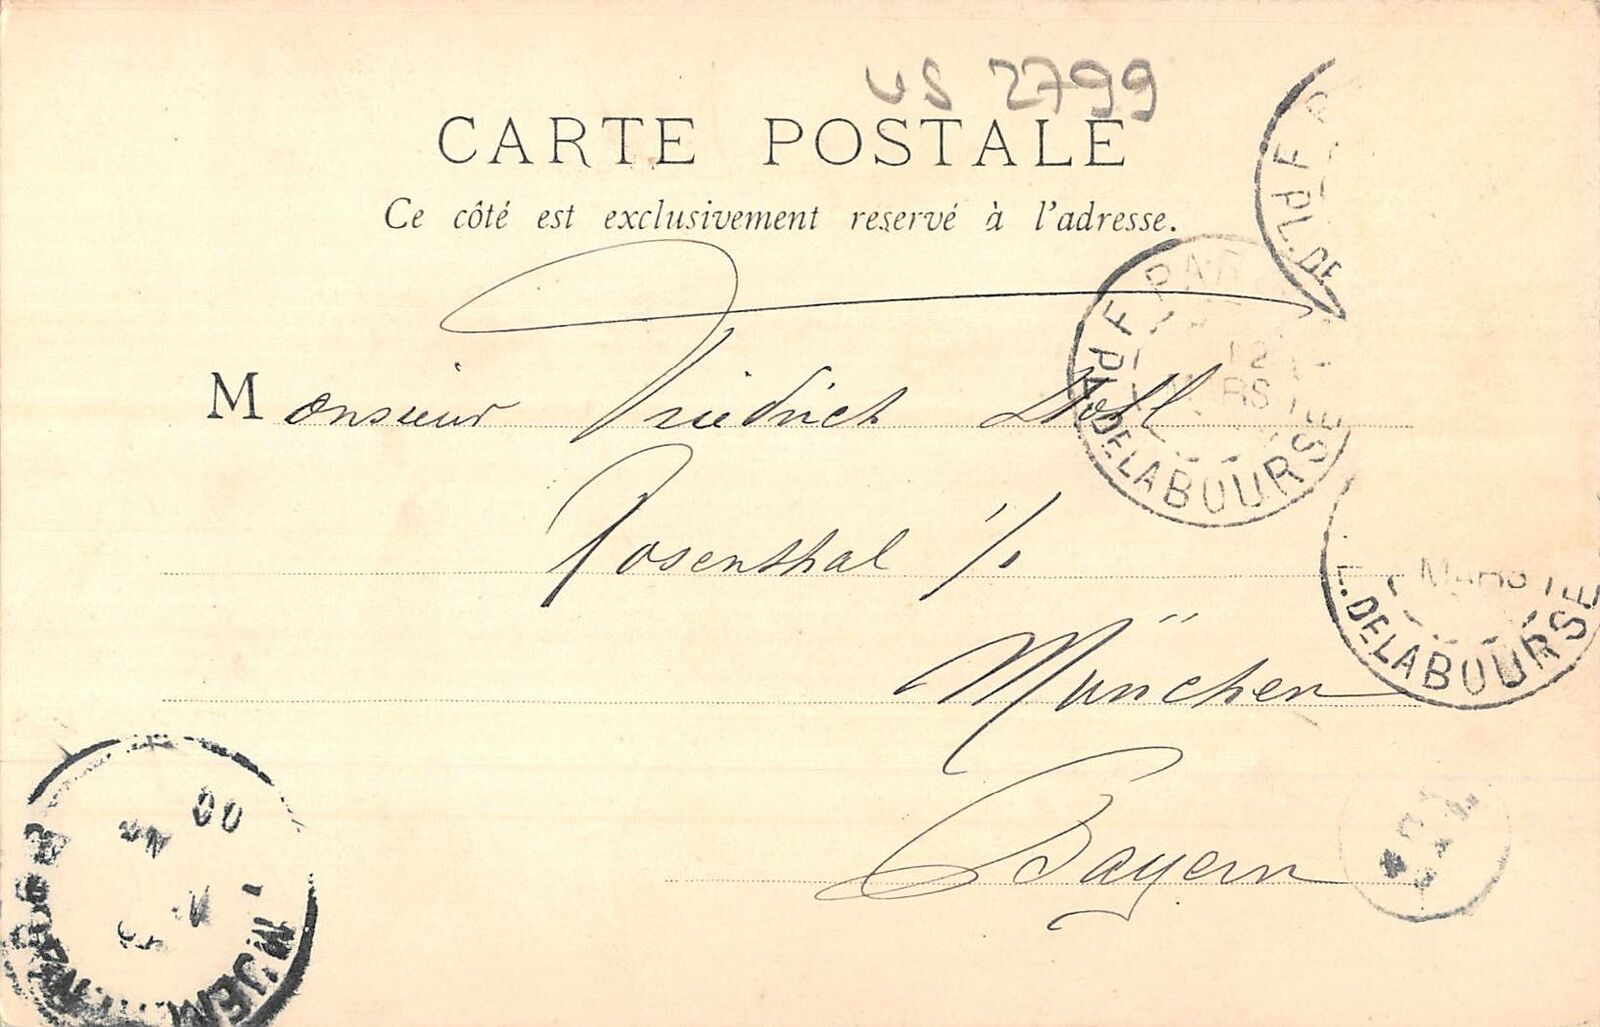 US 2799
CARTE POSTALE
Ce côté est exclusivement reservé à l'adresse.
Monsieur Friedrich
Rosenthal 1/1
München
Bayern
PARIS
12
MARS
PL. DE LA BOURSE
PL. DE
MARS
PL. DE LA BOURSE
00
MUENCHEN